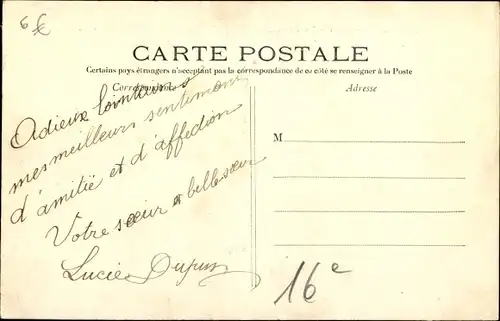 6€
CARTE POSTALE
Certains pays étrangers n'acceptant pas la correspondance de ce côté se renseigner à la Poste
Correspondance
Adresse
Adieux lointains
mes meilleurs sentiments
d'amitié et d'affection
Votre sœur et belle sœur
Lucie Dupuy
M
16e